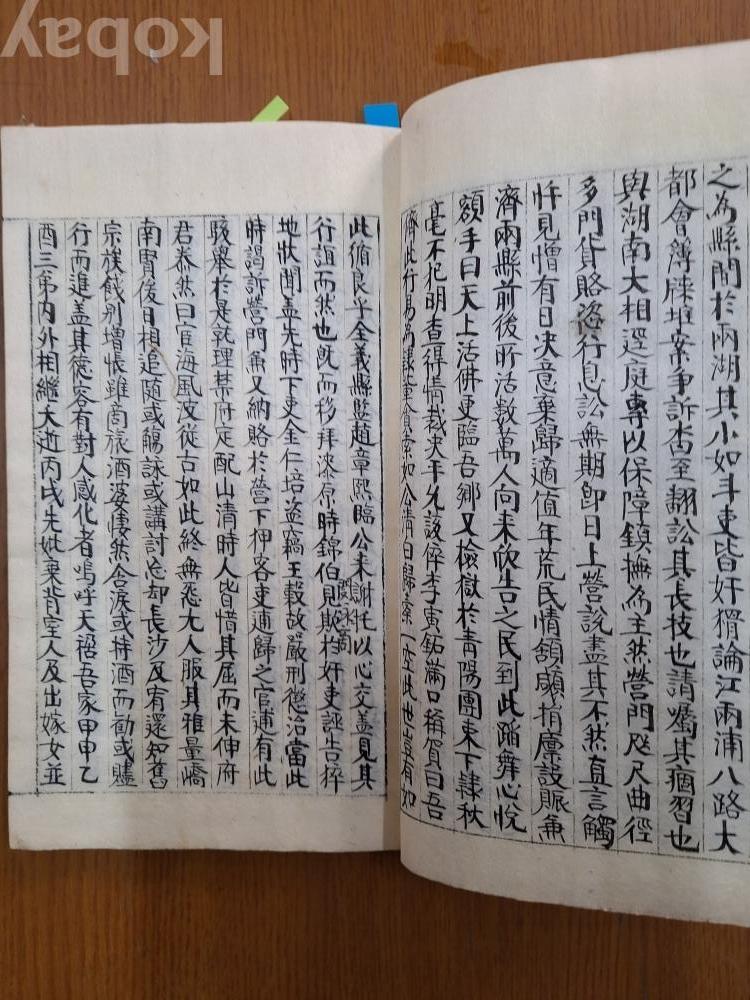 之為縣間於兩湖其小如斗吏皆奸猾論江兩浦八路大
都會簿牒堆案爭訴沓至翻訟其長技也請囑其痼習也
與湖南大相逕庭專以保障鎮撫為主然營門咫尺曲徑
多門貨賂恣行息訟無期卽日上營說盡其不然直言觸
忤見憎有日决意棄歸適值年荒民情頷顑捐廩設賑兼
濟兩縣前後所活數萬人向来欣告之民到此蹈舞心悅
額手曰天上活佛更臨吾鄉又檢獄於靑陽團東下隷秋
毫不犯明查得情裁决平允該倅李寅鉐滿口稱賀曰吾
儕此行易為
此循良乎全義縣監趙章熙臨公来謝托以心交盖見其
閔泳商
行誼而然也旣而移拜漆原時錦伯見欺於奸吏誣告猝
地狀聞盖先時下吏金仁培盜竊王穀故嚴刑懲治當此
時謁訴營門兼又納賂於營下押客吏逋歸之官逋有此
駭舉於是就理禁府定配山清時人皆惜其屈而未伸府
君泰然曰官海風波從古如此終無慍尤人服其雅量嶠
南胃後日相追隨或觴詠或講討忘却長沙及宥還知舊
宗族餞別增悵雖商旅酒婆悽然含淚或持酒而勸或贐
行而進盖其德容有對人感化者嗚呼天禍吾家甲申乙
酉三弟内外相繼夭逝丙戌先妣棄背室人及出嫁女並
kobay